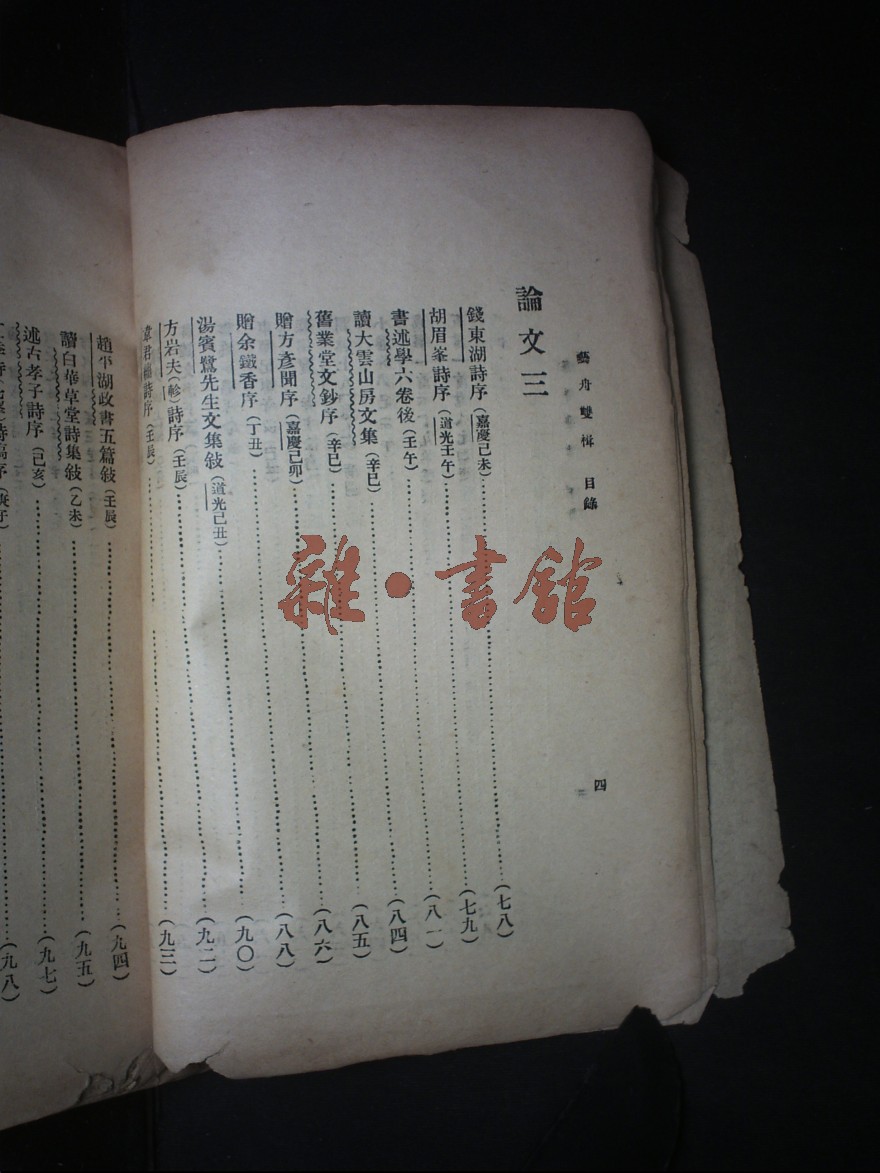 藝舟雙楫 目錄
四
論文三
錢東湖詩序(嘉慶己未)……(七八)
胡眉峯詩序(道光壬午)……(七九)
書述學六卷後(壬午)……(八一)
讀大雲山房文集(辛巳)……(八四)
舊業堂文鈔序(辛巳)……(八五)
贈方彥聞序(嘉慶己卯)……(八六)
贈余鐵香序(丁丑)……(八八)
湯賓鷺先生文集敍(道光己丑)……(九〇)
方岩夫(軫)詩序(壬辰)……(九二)
韋君繡詩序(壬辰)……(九三)
趙平湖政書五篇敍(壬辰)……(九四)
讀白華草堂詩集敍(乙未)……(九五)
述古孝子詩序(己亥)……(九七)
詩稿序(庚子)……(九八)
雜·書館